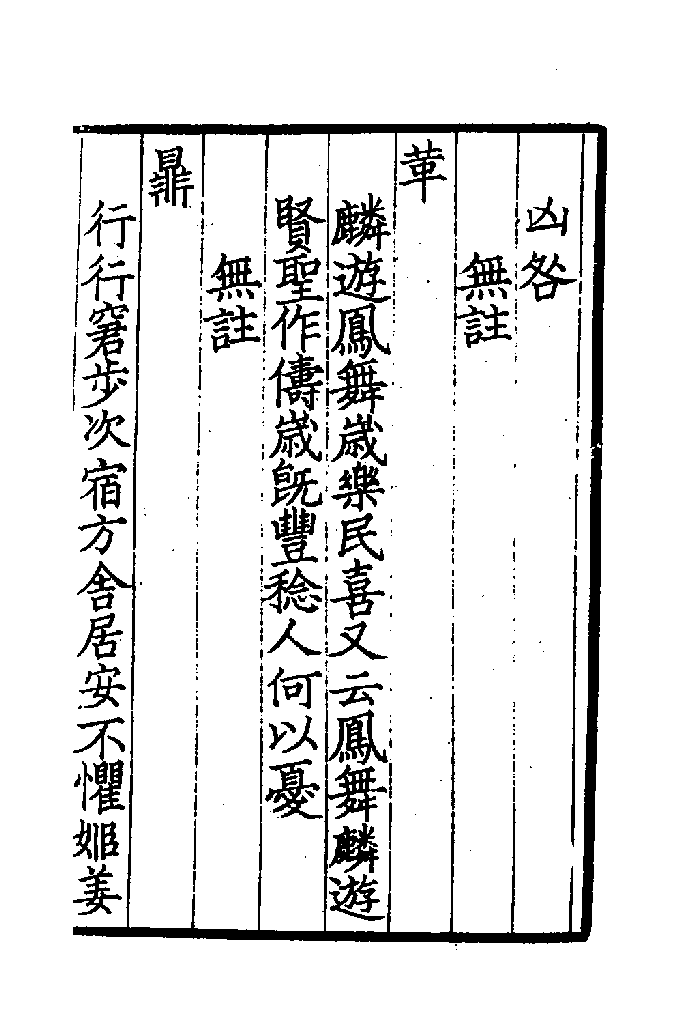 凶咎
無註
革
麟遊鳳舞歳樂民喜又云鳳舞麟遊
賢聖作儔歳旣豐稔人何以憂
無註
鼎
行行窘步次宿方舎居安不懼姬姜